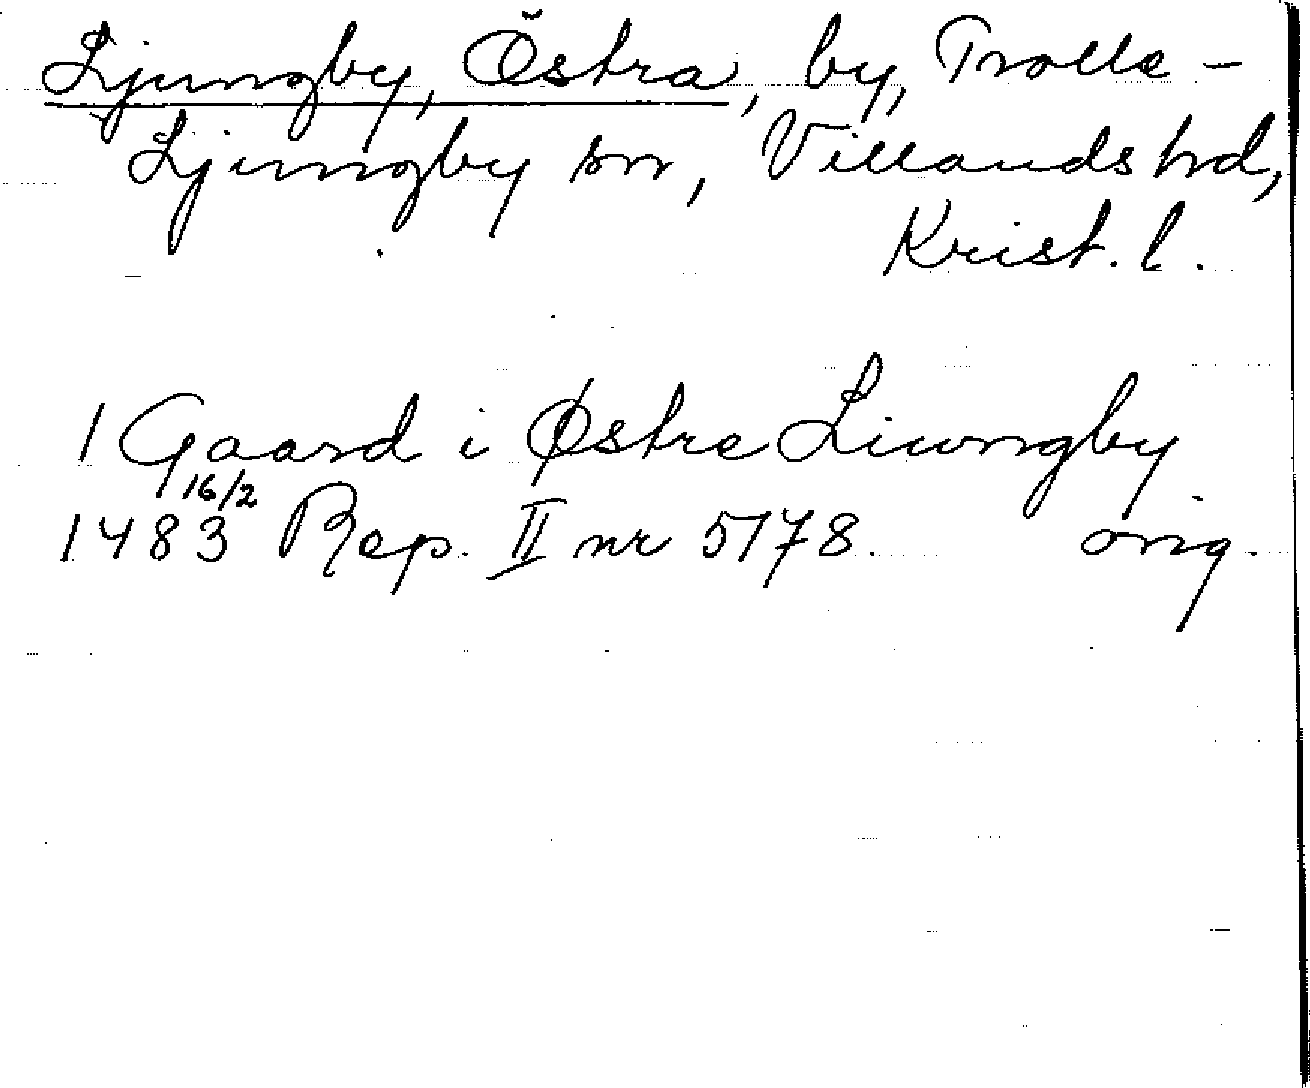 Ljungby, Östra, by, Trolle-
Ljungby sn, Villands hd,
Krist. l.
1 Gaard i Østre Liwngby
1483 16/2 Rep. II nr 5178. orig.